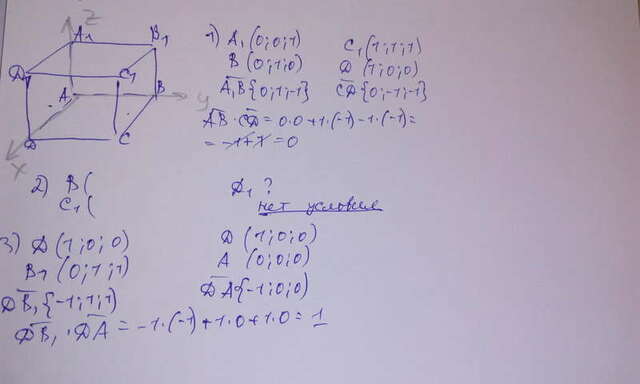 Z
A1 B1
D1 C1
A B y
D C
X
1) A1 (0;0;1) C1 (1;1;1)
B (0;1;0) D (1;0;0)
A1B {0;1;-1} C1D {0;-1;-1}
AB · CD = 0·0+1·(-1)-1·(-1)=
= -1+1 = 0
2) B ( D1 ?
C1 ( нет условия
3) D (1;0;0) D (1;0;0)
B1 (0;1;1) A (0;0;0)
DB1 {-1;1;1} DA {-1;0;0}
DB1 · DA = -1·(-1)+1·0+1·0=1